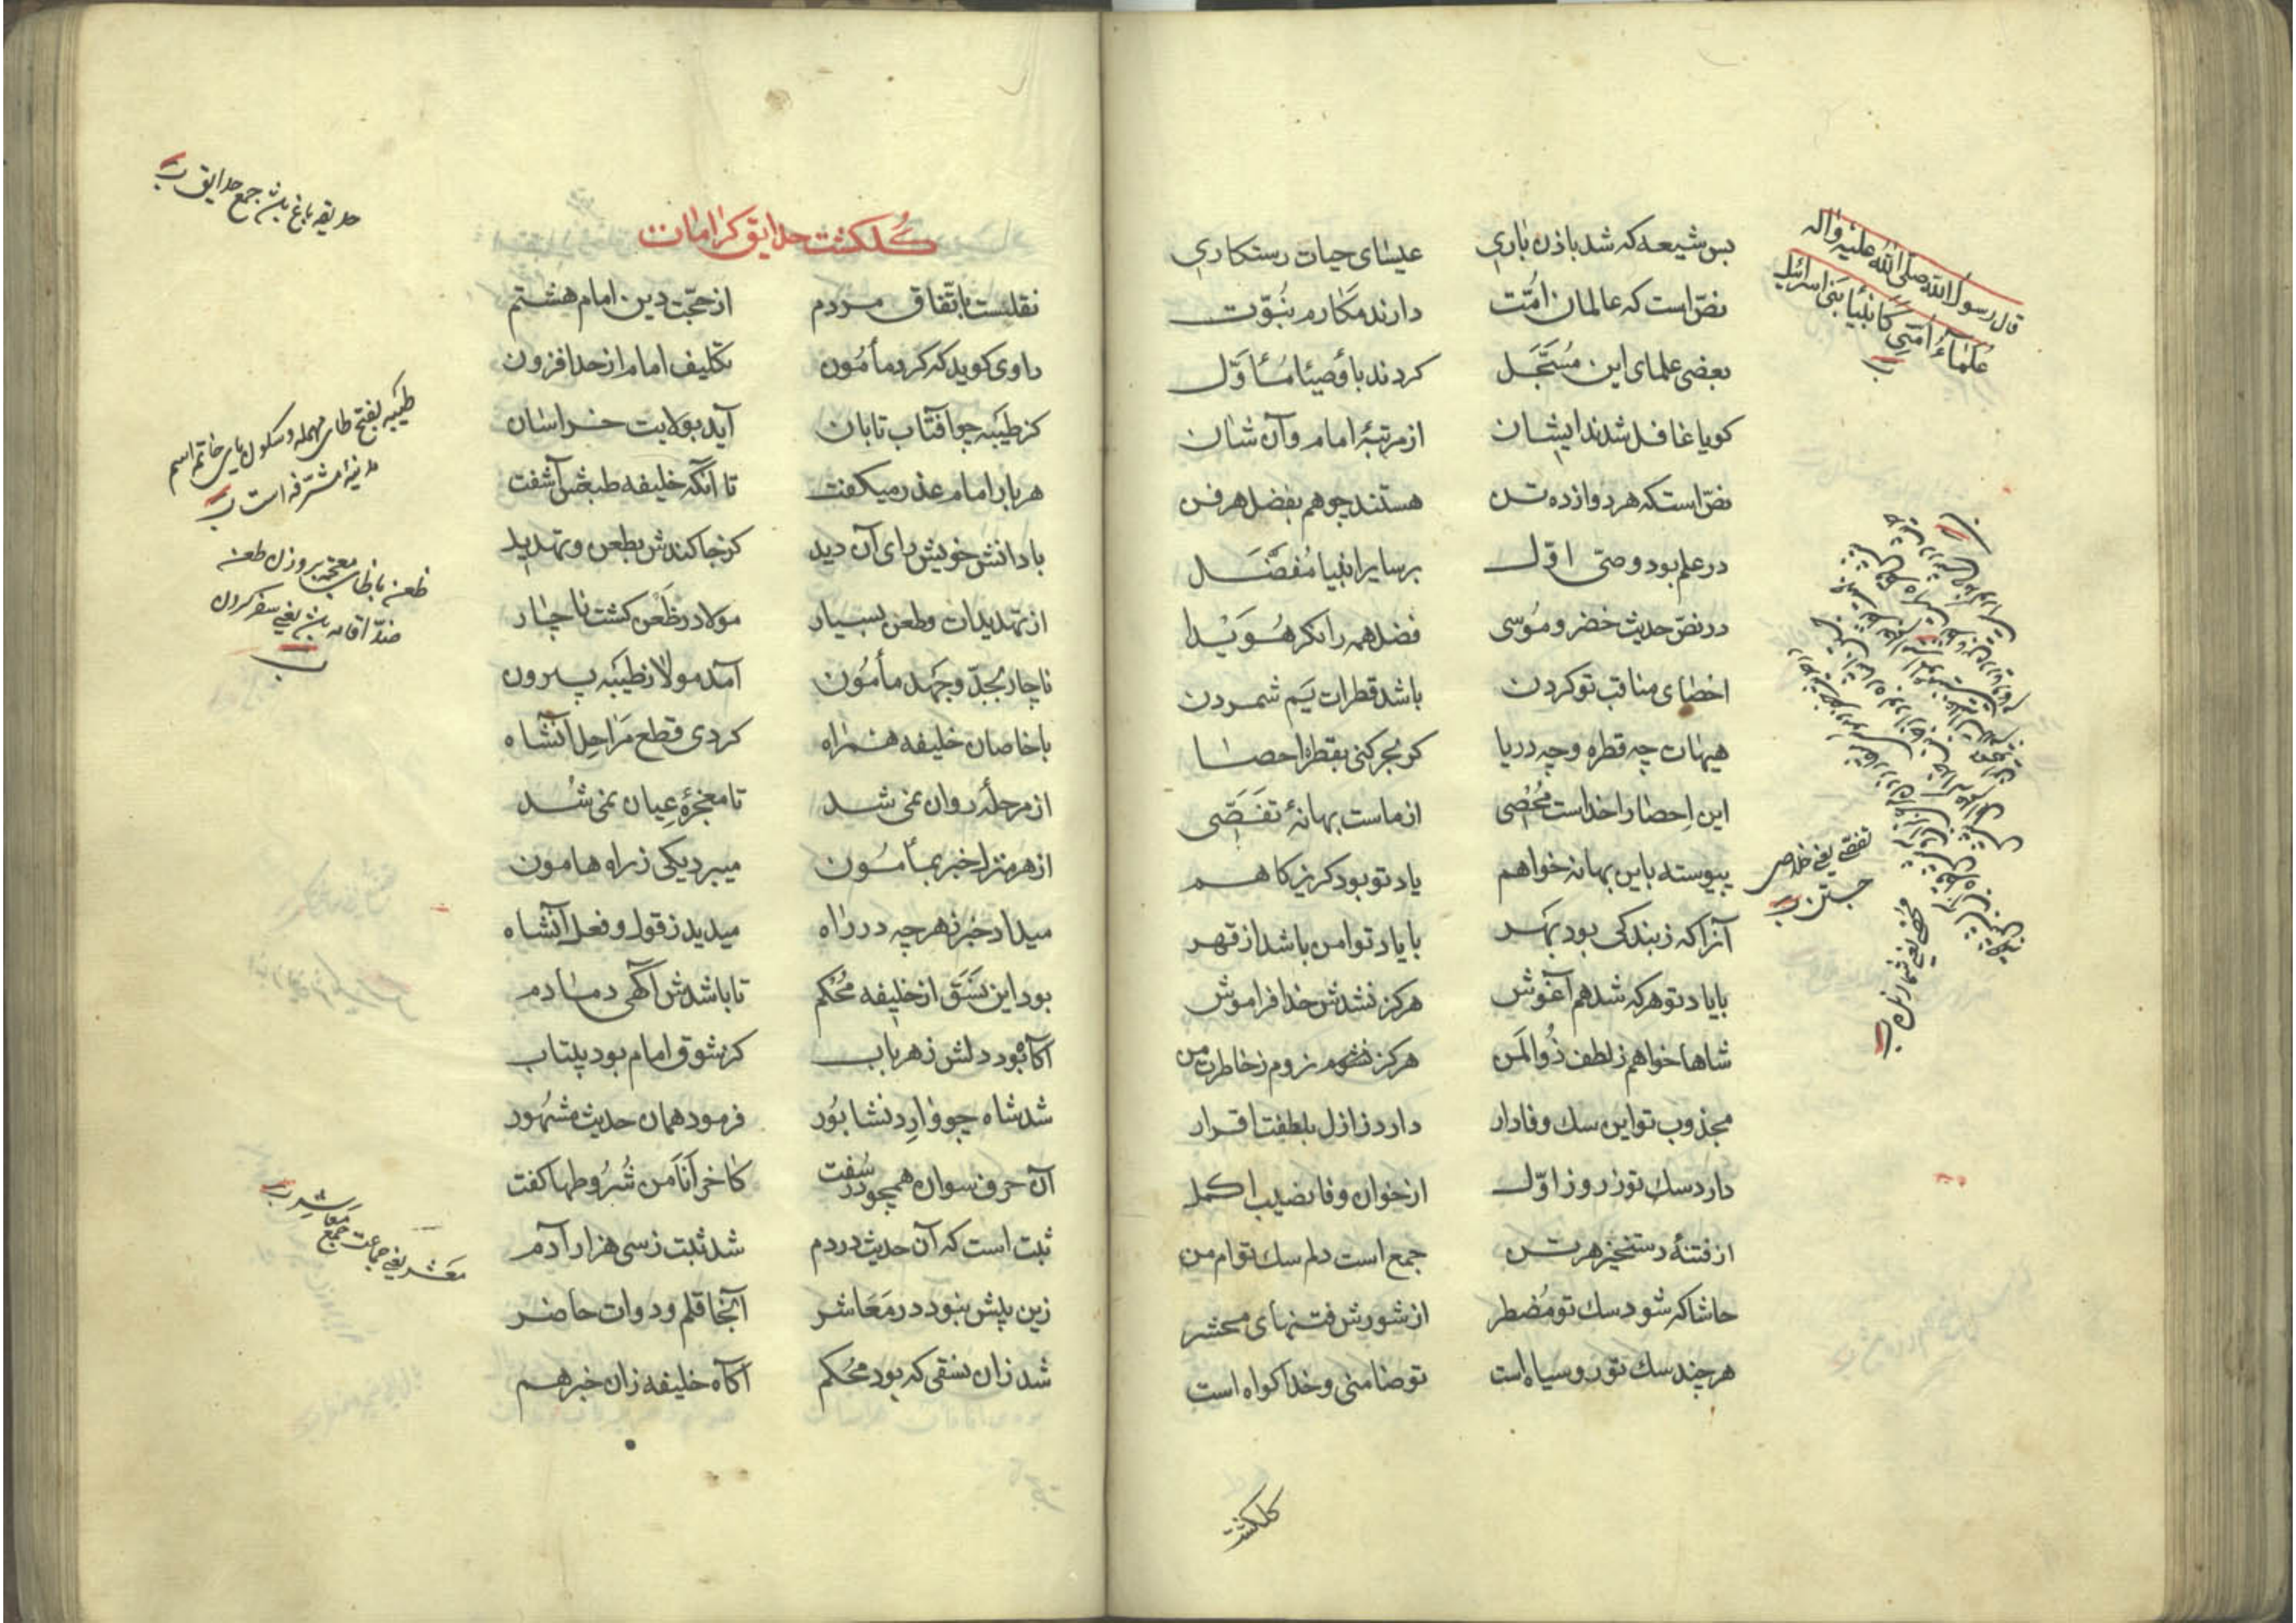 قال رسول الله صلی الله علیه واله
علماء امتی کانبیاء بنی اسرائیل
بس شیعه که شد باذن باری عیسای حیات رستکاری
نصّ است که عالمان امّت دارند مکارم نبوّت
بعضی علمای این مسجّل کردند باوصیا ماوّل
کویا غافل شدند ایشان از مرتبهٔ امام وآن شان
نصّ استکه هر دوازده تن هستند چو هم بفضل هر فن
در علم بود وصیّ اوّل بر سایر انبیا مفضّل
در نصّ حدیث خضر و موسی فضل همه را نکر هویدا
احصای مناقب تو کردن باشد قطرات یم شمردن
هیهات چه قطره و چه دریا کو بحر کنی بقطره احصا
این احصا را خداست محصی از ماست بهانهٔ تفصّی
پیوسته باین بهانه خواهم یاد تو بود کریزکاهم
آنرا که ز بندکی بود بهر با یاد تو امن باشد از قهر
با یاد تو هر که شد هم آغوش هرکز نشدش خدا فراموش
شاها خواهم ز لطف ذوالمن هرکز نشوم نروم ز خاطرت من
مجذوب تو این سك وفادار دارد ز ازل بلطفت اقرار
دارد سك تو ز روز اوّل از خوان وفا نصیب اکمل
از فتنهٔ رستخیز هر تن جمع است دلم سك توام من
حاشا که شود سك تو مضطر از شورش فتنهای محشر
هر چند سك تو رو سیاه است تو ضامنی و خدا کواه است
تفصّی یعنی خلاصی
جستن
محصی یعنی شمارنده
کلکشت
کلکشت حدایق کرامات
نقلست باتّفاق مردم از حجّت دین امام هشتم
راوی کوید که کرد مأمون تکلیف امام از حد افزون
کز طیبه چو آفتاب تابان آید بولایت خراسان
هر بار امام عذر میکفت تا آنکه خلیفه طبعش آشفت
با دانش خویش رای آن دید کز جا کندش بطعن و تهدید
از تهدیدات و طعن بسیار مولا در ظعن کشت ناچار
ناچار بجدّ و جهد مأمون آمد مولا ز طیبه بیرون
با خاصان خلیفه همراه کردی قطع مراحل آنشاه
از مرحلهٔ روان نمی شد تا معجزهٔ عیان نمی شد
از هر منزل خبر بمأمون میبرد یکی ز راه هامون
میداد خبر ز هر چه در راه میدید ز قول و فعل آنشاه
بود این نسق از خلیفه محکم تا باشدش آکهی دمادم
آکاه بود دلش ز هر باب کز شوق امام بود بیتاب
شد شاه چو وارد نشابور فرمود همان حدیث مشهور
آن حرف نسوان همچو در سفت کاخر انا من شروطها کفت
ثبت است که آن حدیث در دم شد ثبت ز سی هزار آدم
زین بیش نبود در معاشر آنجا قلم و دوات حاضر
شد زان نسقی که بود محکم آکاه خلیفه زان خبر هم
حدیقه باغ باشد جمع حدایق
طیبه بفتح طای مهمله و سکون یای خاتم اسم
مدینهٔ مشرفه است
ظعن با ظای معجمه بر وزن طعن
ضدّ اقامه باشد یعنی سفر کردن
معشر یعنی جماعت جمع معاشر